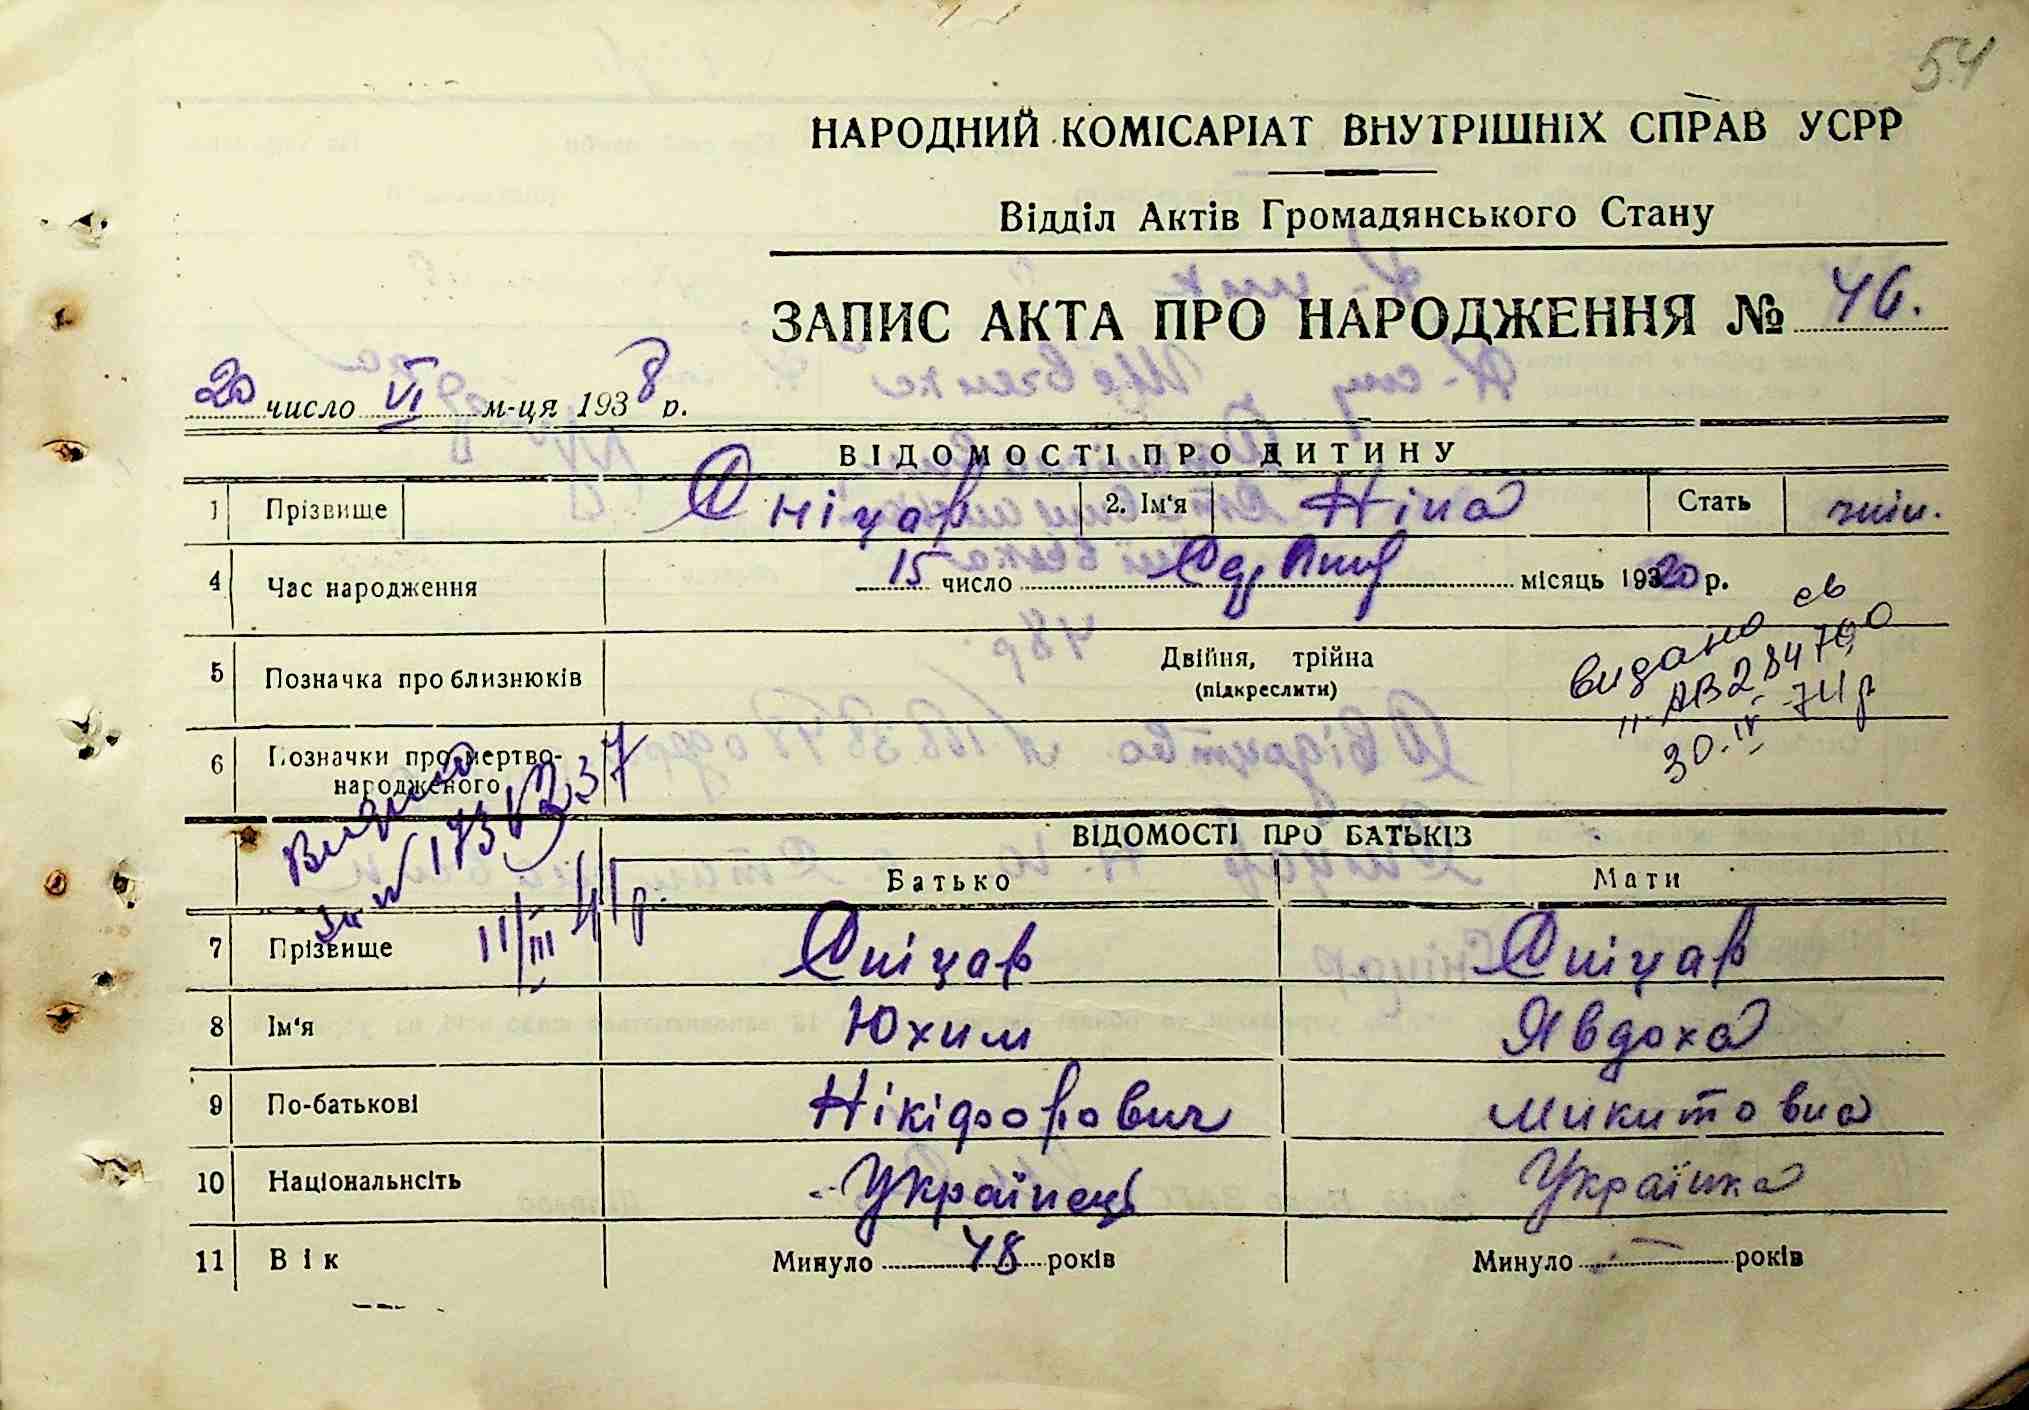 54
НАРОДНИЙ КОМІСАРІАТ ВНУТРІШНІХ СПРАВ УСРР
Відділ Актів Громадянського Стану
ЗАПИС АКТА ПРО НАРОДЖЕННЯ № 46.
20 число VI м-ця 1938 р.
ВІДОМОСТІ ПРО ДИТИНУ
1 Прізвище Сніцар 2. Ім'я Ніна Стать жін.
4 Час народження 15 число Серпня місяць 1920 р.
5 Позначка про близнюків Двійня, трійна
(підкреслити)
видано св
АВ 284700
30.IV 74 р
6 Позначки про мертво-
народженого
Видано
за № 173 237
11/III 41р.
ВІДОМОСТІ ПРО БАТЬКІВ
Батько Мати
7 Прізвище Сніцар Сніцар
8 Ім'я Юхим Явдоха
9 По-батькові Нікіфорович Микитовна
10 Національність Українець Українка
11 Вік Минуло 48 років Минуло — років